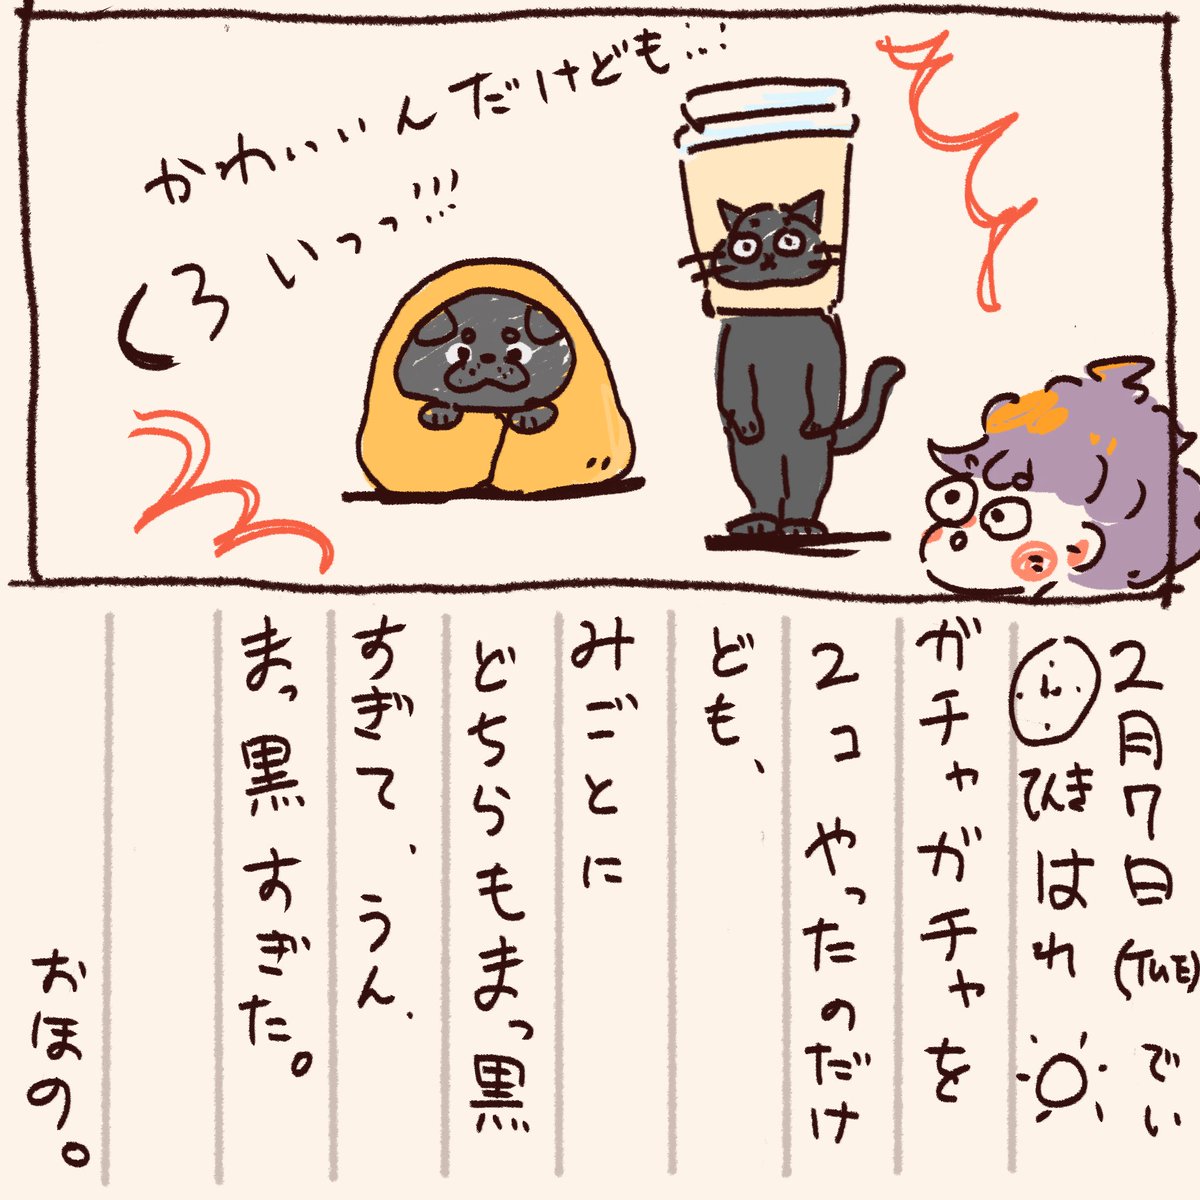 かわいいんだけども…!
くろいっっ!!!
2月7日(TUE)でい
てんきはれ
ガチャガチャを
2コやったのだけ
ども、
みごとに
どちらもまっ黒
すぎて、うん、
まっ黒すぎた。
おほの。